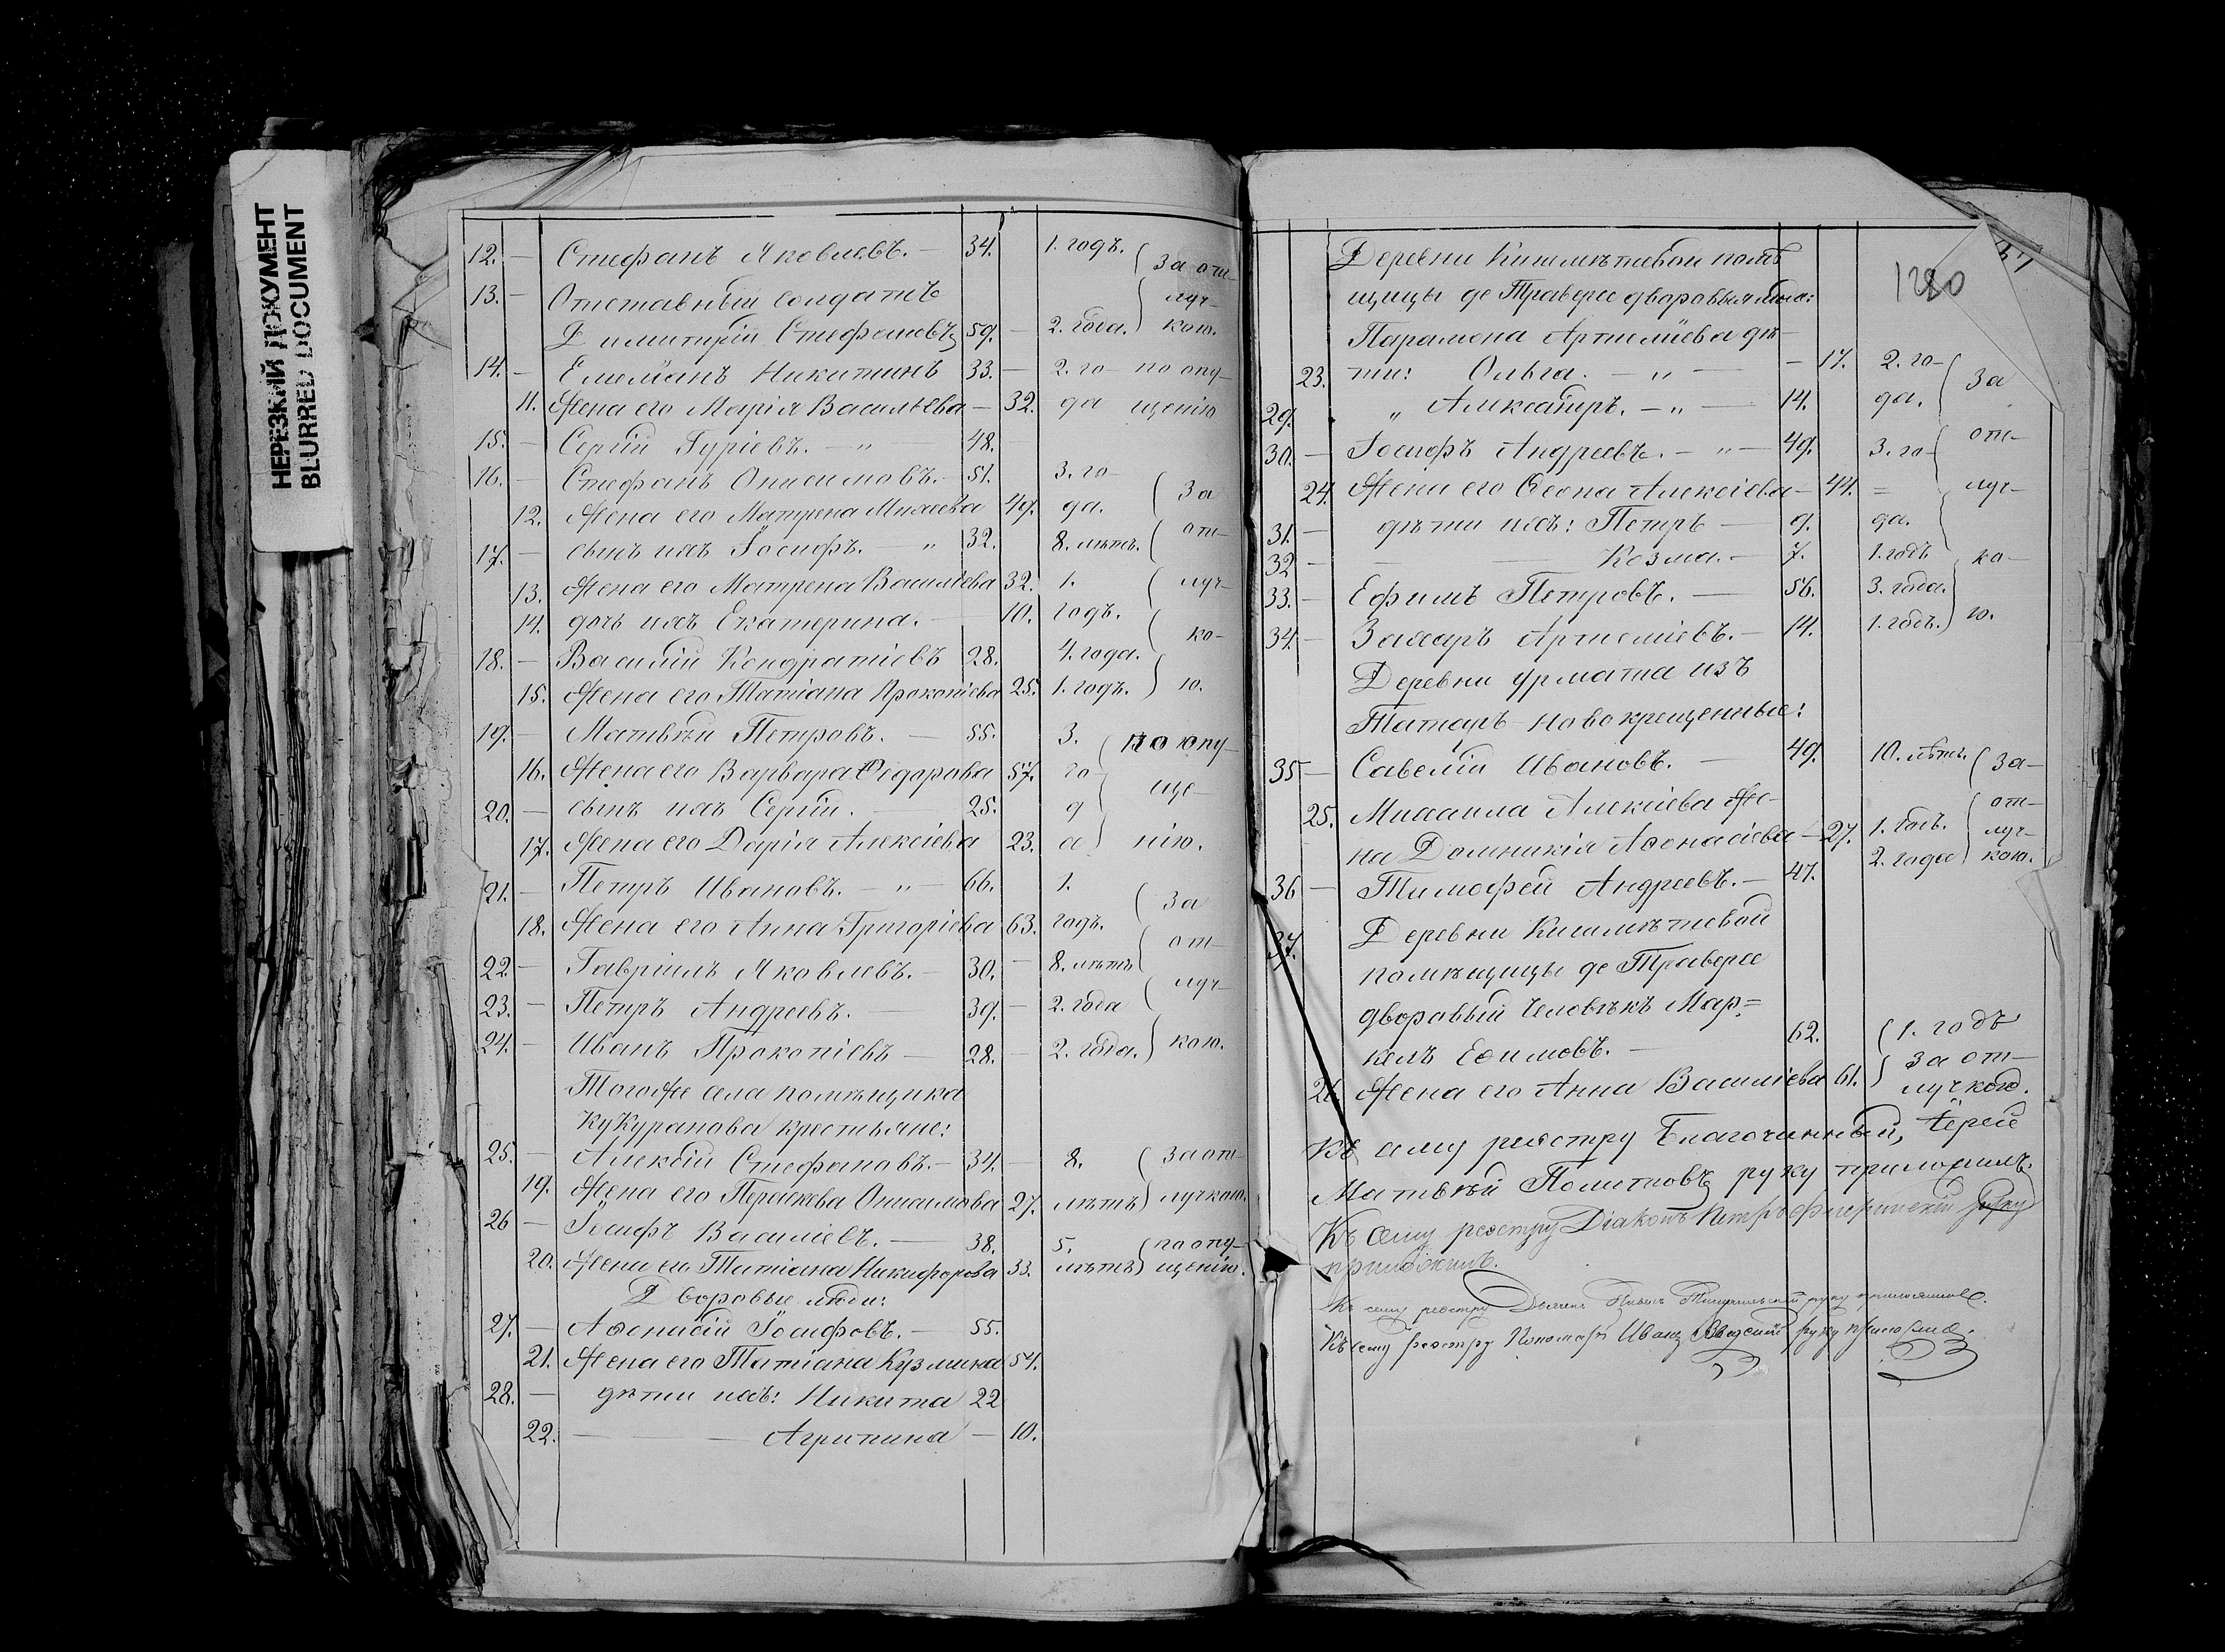 НЕРЕЗКИЙ ДОКУМЕНТ
BLURRED DOCUMENT
12. — Стефанъ Яковлевъ. — 34. 1. годъ. за от-
13. — Отставный солдатъ луч-
Димитрій Стефановъ 59. — 2. года. кою.
14. — Емеліанъ Никитинъ 33. — 2. го- по опу-
11. Жена его Марія Васильева — 32. да щенію
15. — Сергій Гуріевъ. — " 48.
16. — Стефанъ Онисимовъ. — 51. 3. го- за
12. Жена его Матрена Михаева 49. да.
17. — сынъ ихъ Іосифъ. — " 32. 8. лѣтъ. от-
13. Жена его Матрена Васильева 32. 1. луч-
14. дочь ихъ Екатерина. — 10. годъ.
18. — Василій Кондратіевъ 28. 4. года. ко-
15. Жена его Татіана Прокопіева 25. 1. годъ. ю.
19. — Матвѣй Петровъ. — 55. 3. по опу-
16. Жена его Варвара Ѳедорова 57. го-
20. — сынъ ихъ Сергій. — 25. д ще-
17. Жена его Дарія Алексіева 23. а нію.
21. — Петръ Ивановъ. — " — 66. 1. за
18. Жена его Анна Григоріева 63. годъ.
22. — Гавріилъ Яковлевъ. 30. — 8. лѣтъ от-
23. — Петръ Андреевъ. — 39. — 2. года луч-
24. — Иванъ Прокопіевъ — 28. — 2. года. кою.
Тогоже села помѣщика
Кукуранова крестьяне:
25. — Алексій Стефановъ. — 34. — 8. за от-
19. Жена его Пераскева Онисимова 27. лѣтъ лучкою.
26 — Іосифъ Василіевъ. — 38. 5. по опу-
20. Жена его Татіана Никифорова 33. лѣтъ щенію.
Дворовые люди:
27. — Аѳонасій Іосифовъ. — 55.
21. Жена его Татіана Кузмина 54.
28. — дѣти ихъ: Никита 22
22. — — — Агрипина — 10.
1280
Деревни Кишметевой помѣ
щицы де Траверсе дворовыя люди:
Парамона Артеміева дѣ-
23. ти: Ольга. — " — — 17. 2. го- за
29. " Александръ. — " — 14. да.
30. — Іосифъ Андреевъ. — " — 49. 3. го- от-
24. Жена его Ѳеона Алексіева — 44. = луч-
31. — дѣти ихъ: Петръ — 9. да.
32 — — — Козма. — 7. 1. годъ ко-
33. — Ефимъ Петровъ. — 56. 3. года.
34. — Захаръ Артеміевъ. — 14. 1. годъ. ю.
Деревни Урмата изъ
Татаръ новокрещенные:
35 — Савелій Ивановъ. — 49. 10. лѣтъ. за-
25. Михаила Алексіева же- от-
на Домникія Аѳонасіева — 27. 1. годъ. луч-
36 — Тимофей Андреевъ. — 47. 2. года кою.
37. Деревни Кишметевой
помѣщицы де Траверсе
дворовый человѣкъ Мар-
келъ Ефимовъ. — 62. 1. годъ
26. Жена его Анна Василіева 61. за от-
лучкою.
Къ сему реэстру Благочинный, Іерей
Матвѣй Политовъ руку приложилъ.
Къ сему реэстру Діаконъ Петръ руку
приложилъ.
Къ сему реэстру Дьячекъ руку приложилъ.
Къ сему реэстру Пономарь Иванъ руку приложилъ.